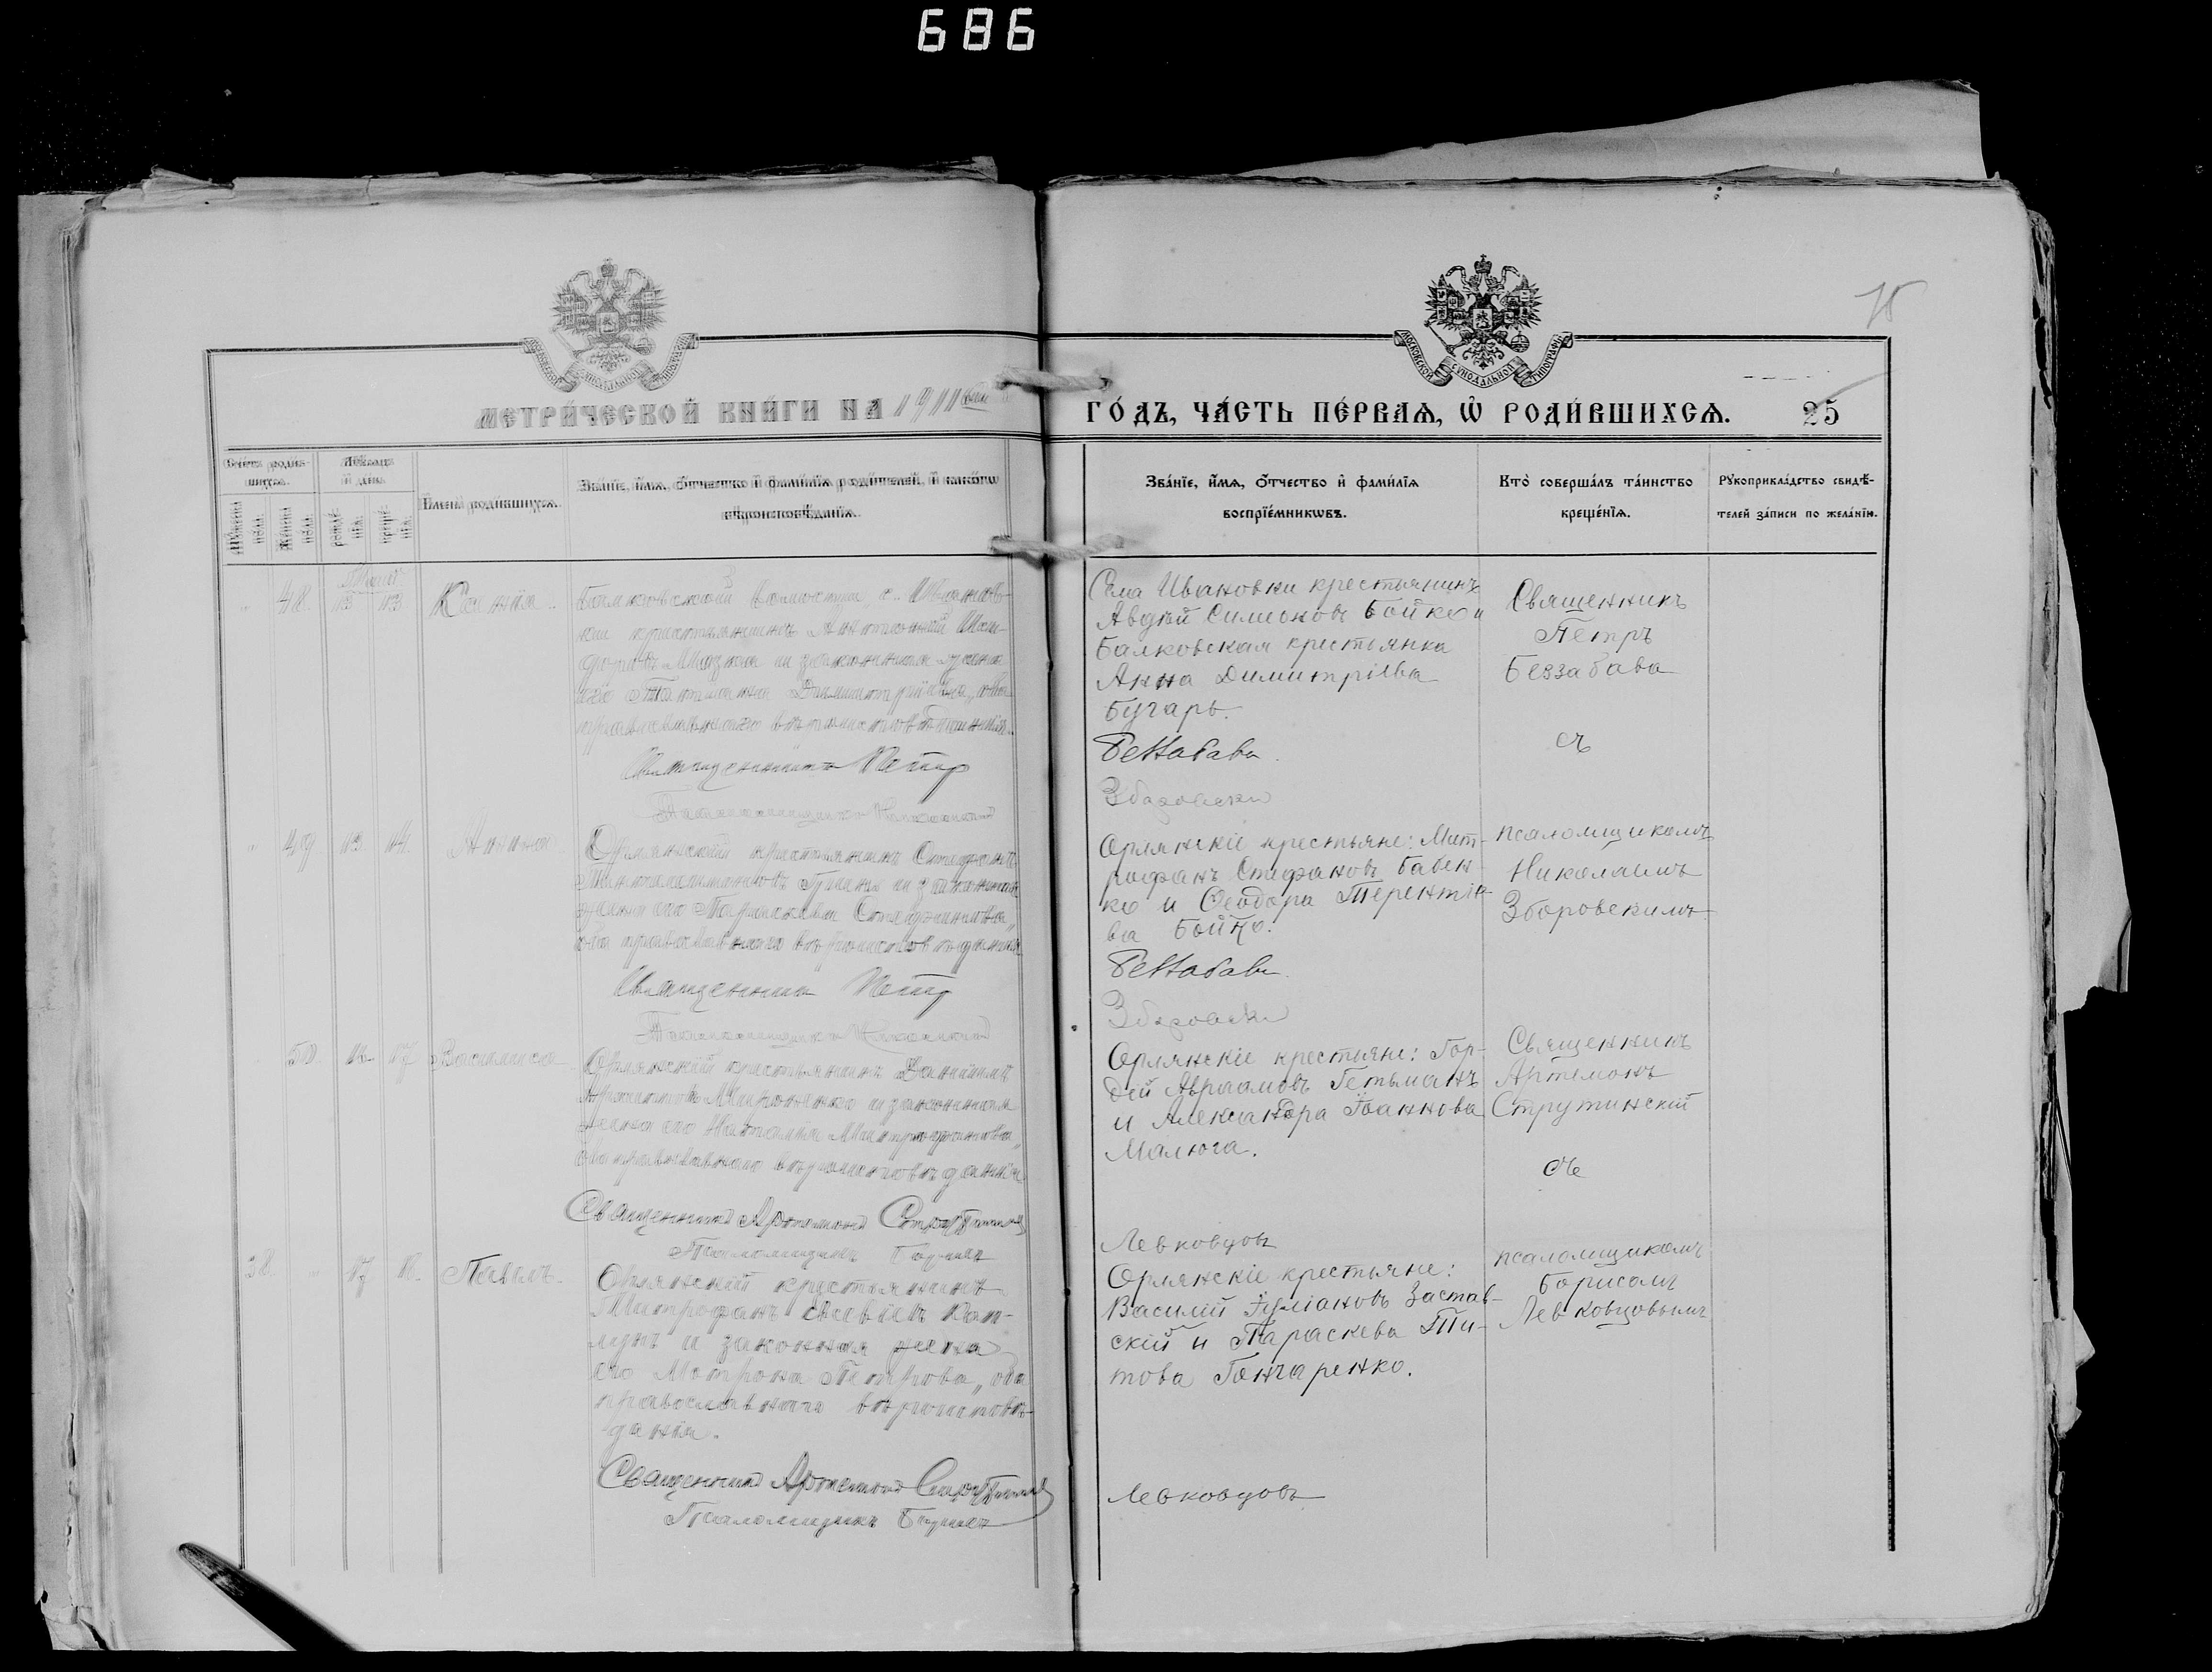 686
75
МОСКОВСКОЙ СУНОДАЛЬНОЙ ТИПОГРАФІИ
МЕТРИ́ЧЕСКОЙ КНИ́ГИ НА 1911
ГО́ДЪ, ЧА́СТЬ ПЕ́РВАѦ, Ѡ҆ РОДИ́ВШИХСѦ.
25
Сче́тъ роди́в-
шихсѧ.
Мѣ́сѧцъ
и҆ де́нь
Му́жеска
по́ла.
Же́нска
по́ла.
рожде́-
нїѧ.
креще́-
нїѧ.
И҆мена̀ роди́вшихсѧ.
Зва́нїе, и҆́мѧ, ѻ҆́тчество и҆ фами́лїѧ роди́телей, и҆ како́гѡ
вѣроисповѣ́данїѧ.
Зва́нїе, и҆́мѧ, ѻ҆́тчество и҆ фами́лїѧ
воспрїе́мникѡвъ.
Кто̀ соверша́лъ та́инство
креще́нїѧ.
Рꙋкоприкла́дство свидѣ́-
телей за́писи по жела́нїю.
48. 13 13 Ксенія.
Балковской волости с. Иванов-
ки крестьянинъ Антоній
и законная жена
его Татіана Димитріева, оба
православнаго вѣроисповѣданія.
Священникъ Петр
Псаломщикъ Николай
Села Ивановки крестьянинъ
Авдѣй Симеоновъ Бойко и
Балковская крестьянка
Анна Димитріева
Бугарь.
Беззабава
Зборовски
Священникъ
Петръ
Беззабава
съ
49 13 14. Анна
Орлянскій крестьянинъ Стефанъ
Пантелеимоновъ и законная
жена его Параскева Стефанова,
оба православнаго вѣроисповѣданія
Священник Петр
Псаломщикъ Николай
Орлянскіе крестьяне: Мит-
рофанъ Стефановъ Бабен-
ко и Ѳеодора Терентіе-
ва Бойко.
Беззабава
Зборовски
псаломщикомъ
Николаемъ
Зборовскимъ
50. 16 17 Василиса
Орлянскій крестьянинъ Даніилъ
Мироненко и законная
жена его Наталія Митрофанова,
оба православнаго вѣроисповѣданія
Священникъ Артемонъ Струтински
Псаломщикъ Борисъ
Орлянскіе крестьяне: Гор-
дей Авраамовъ Гетьманъ
и Александра Іоаннова
Малюга.
Левковцовъ
Священникъ
Артемонъ
Струтинскій
съ
38. 17 18. Павелъ.
Орлянскій крестьянинъ
Митрофанъ
и законная жена
его Матрона Петрова, оба
православнаго вѣроисповѣ-
данія.
Священникъ Артемонъ Струтински
Псаломщикъ Борисъ
Орлянскіе крестьяне:
Василій Іуліановъ Застав-
скій и Параскева Ти-
това Гончаренко.
Левковцовъ
псаломщикомъ
Борисомъ
Левковцовымъ